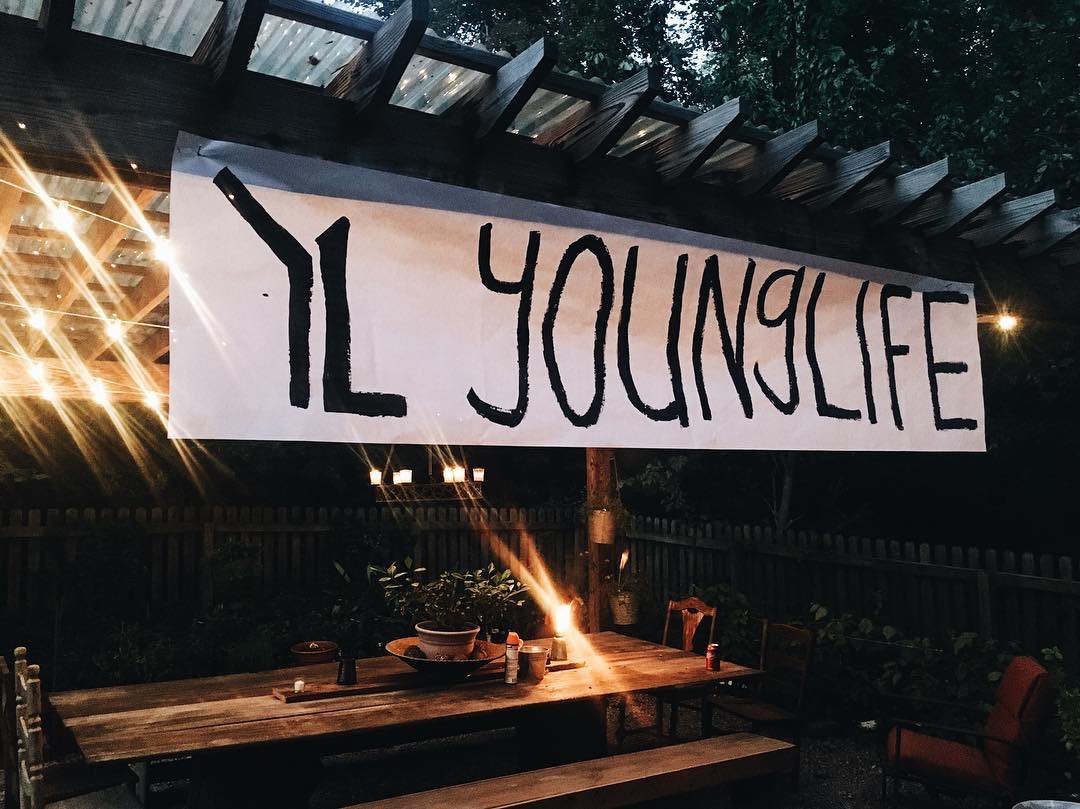 YL YOUNgLIFE